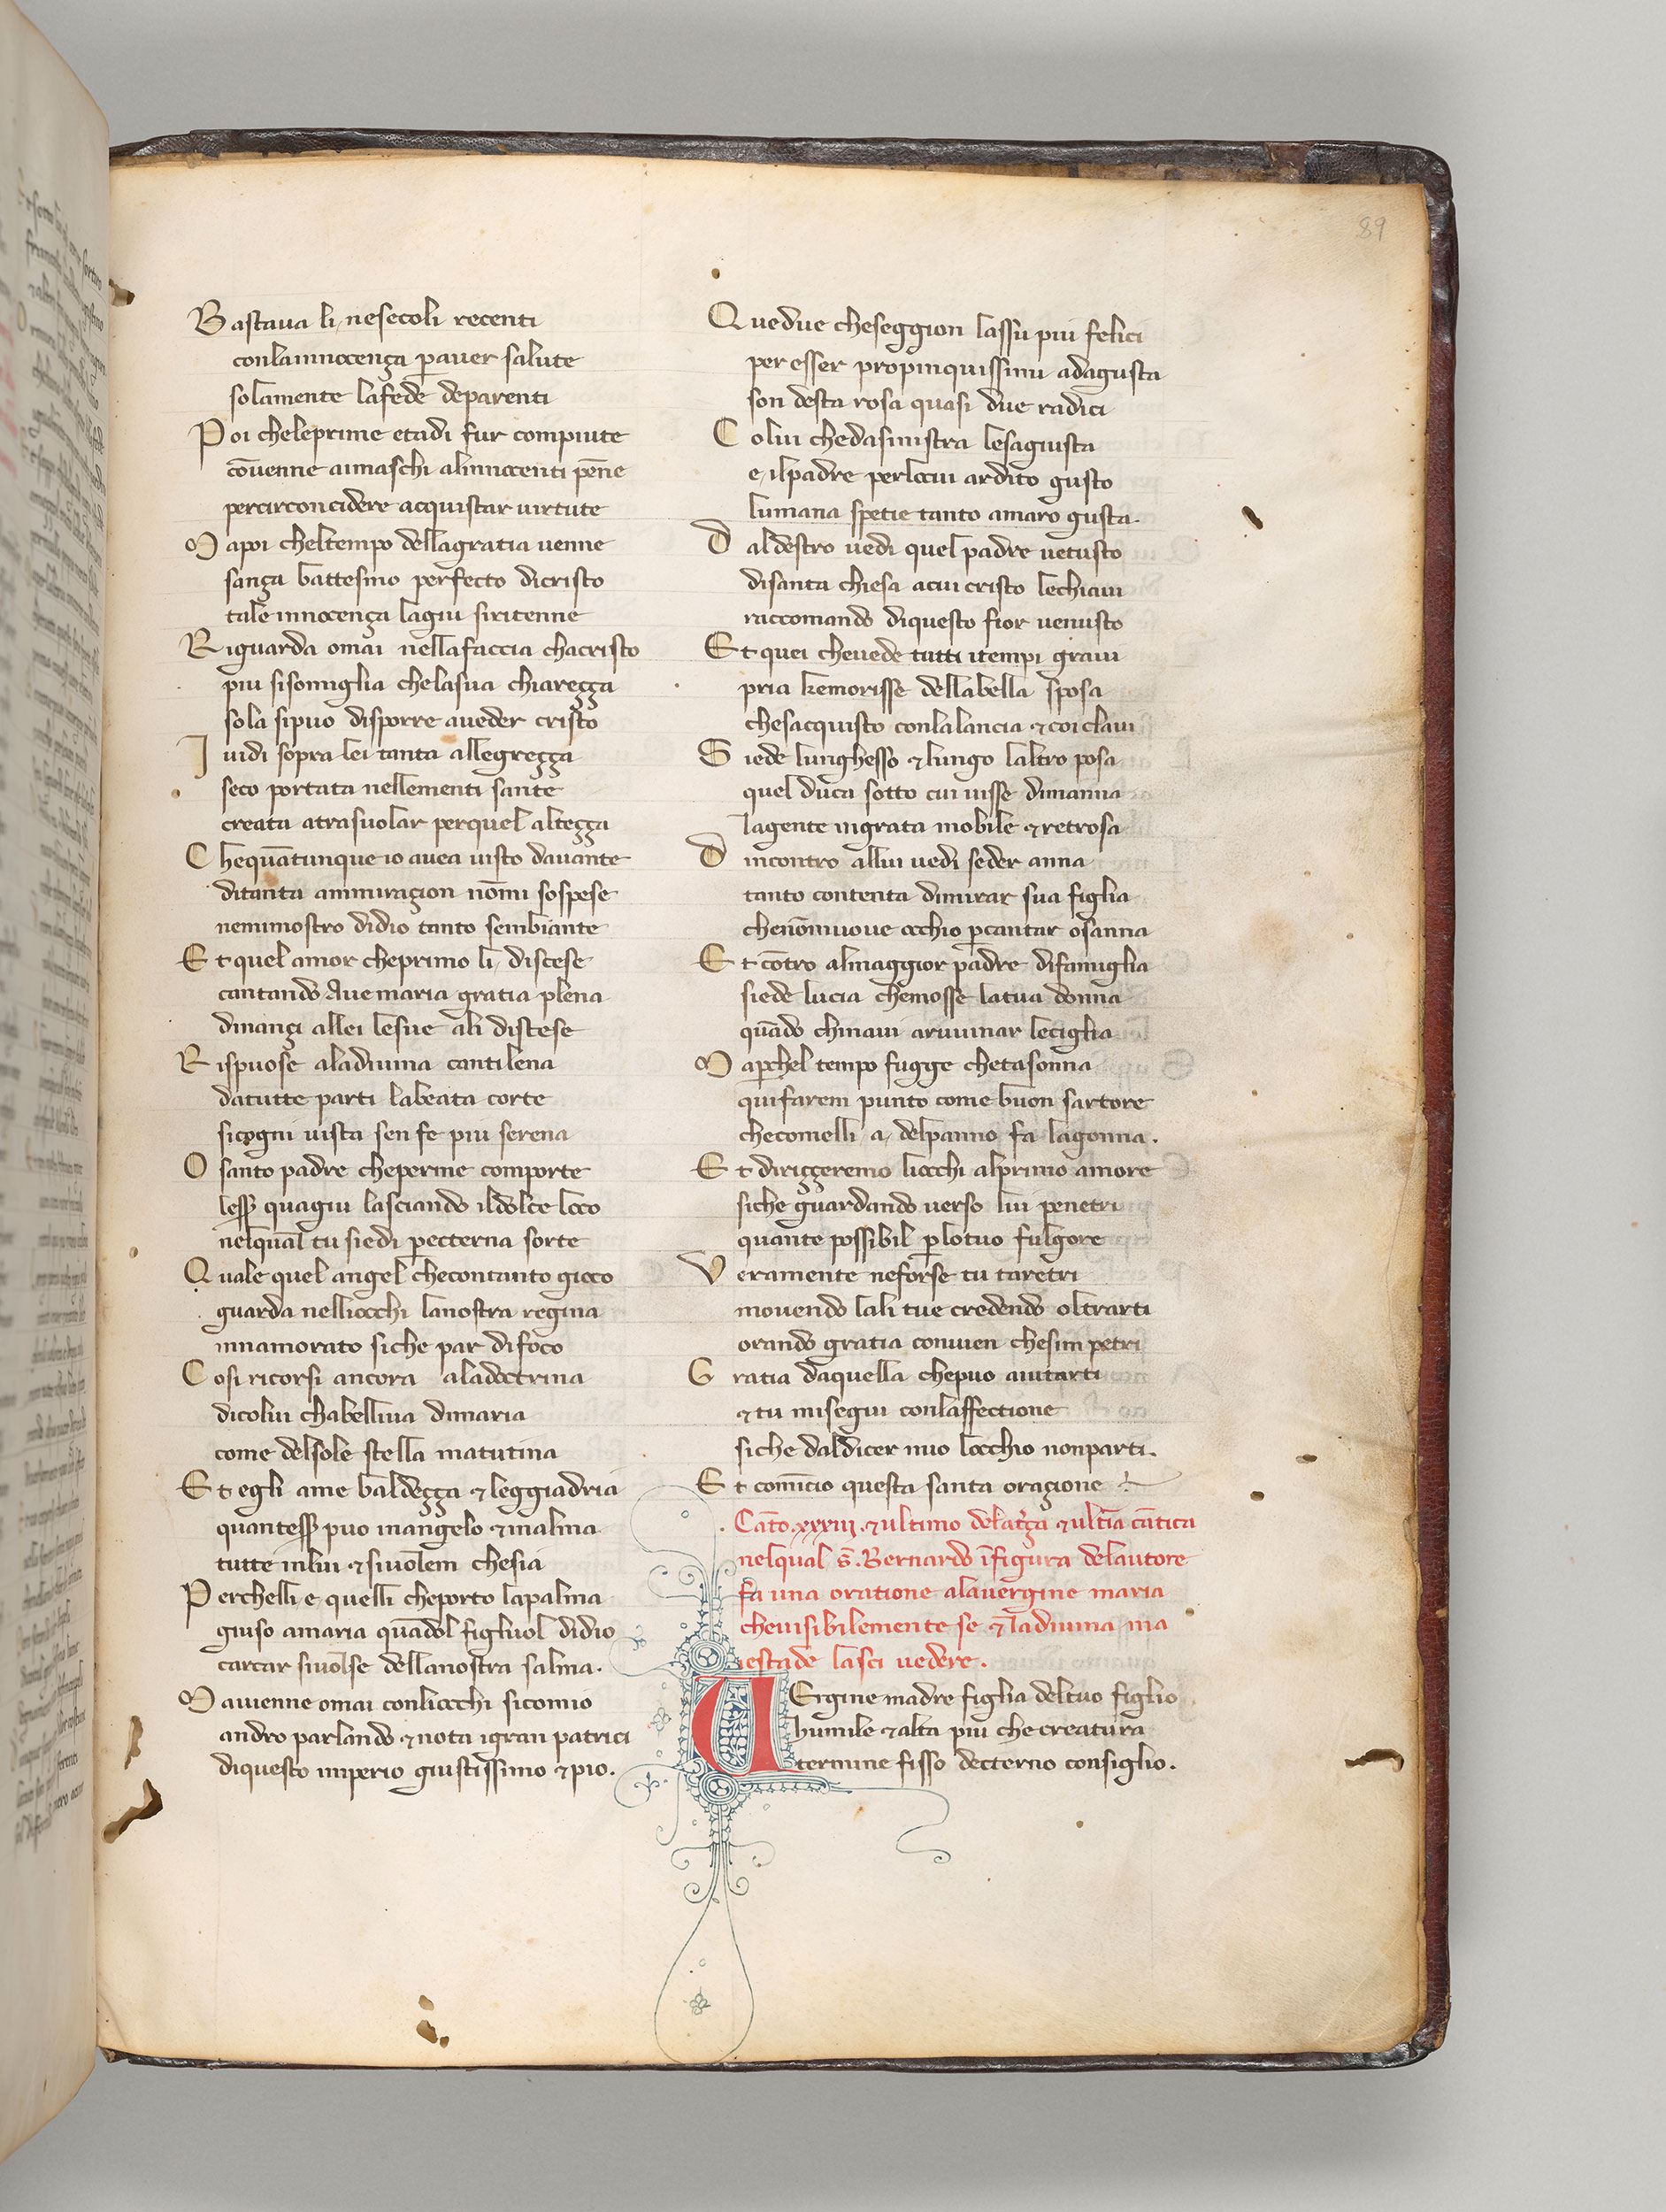 89
Bastaua li, nesecoli recenti
conlainnocença p̱auer salute
solamente lafede deparenti
Poi cheleprime etadi fur compiute
cōuenne aimaschi alinnocenti pēne
percirconcidere acquistar uirtute
Mapoi cheltempo dellagratia uenne
sança battesmo perfecto dicristo
tale innocença lagiu siritenne
Riguarda omai nellafaccia chacristo
piu sisomiglia chelasua chiareçça
sola sipuo disporre aueder cristo
Iuidi sopra lei tanta allegreçça
seco portata nellementi sante
creata atrasuolar perquel alteçça
Chequātunque io auea uisto dauante
ditanta ammiraçion nōmi sospese
nemimostro didio tanto sembiante
Et quel amor cheprimo li, discese
cantando Aue maria gratia plena
dinançi allei lesue ali discese
Rispuose aladiuina cantilena
datutte parti labeata corte
sicogni uista sen fe piu serena
O santo padre cheperme comporte
less̱ quagiu lasciando ildolce loco
nelqual tu siedi p̱ecterna sorte
Quale quel angel checontanto gioco
guarda nelliocchi lanostra regina
innamorato siche par difoco
Cosi ricorsi ancora aladoctrina
dicolui chabelliua dimaria
come delsole stella matutina
Et egli ame baldeçça ⁊ leggiadria
quantess̱ puo inangelo ⁊ inalma
tutte inlui ⁊ siuolem chesia
Perchelli, e, quelli cheporto lapalma
giuso amaria quādol figliuol didio
carcar siuolse dellanostra salma.
Mauienne omai conliocchi sicomio
andro parlando ⁊ nota igran patrici
diquesto imperio giustissimo ⁊ pio.
Quedue cheseggion lassu piu felici
per esser propinquissimi adagusta
son desta rosa quasi due radici
Colui chedasinistra lesagiusta
e, ilpadre perlocui ardito gusto
lumana spetie tanto amaro gusta.
Daldestro uedi quel padre uetusto
disanta chiesa acui cristo lechiaui
raccomando diquesto fior uenusto
Et quei cheuede tutti itempi graui
pria kemorisse dellabella sposa
chesacquisto conlalancia ⁊ coi claui
Siede lunghesso ⁊ lungo laltro posa
quel duca sotto cui uisse dimanna
lagente ingrata mobile ⁊ retrosa
Dincontro allui uedi seder anna
tanto contenta dimirar sua figlia
chenōmuoue occhio p̱cantar osanna
Et cōtro almaggior padre difamiglia
siede lucia chemosse latua donna
quādo chinaui aruuinar leciglia
Map̱chel tempo fugge chetasonna
qui farem punto come buon sartore
checomelli, a, delpanno fa lagonna.
Et diriççeremo liocchi alprimo amore
siche guardando uerso lui penetri
quante possibil p̱lotuo fulgore
Veramente neforse tu taretri
mouendo lali tue credendo oltrarti
orando gratia conuien chesim petri
Gratia daquella chepuo aiutarti
⁊ tu misegui conlaffectione
siche daldicer mio locchio nonparti.
Et comīcio questa santa oraçione
Cāto.xxxiii.⁊ ultimo delat̄ça ⁊ ultīa cātica
nelqual .s̄. Bernardo īfigura delautore
fa una oratione alauergine maria
cheuisibilemente se ⁊ ladiuina ma
iestade lasci uedere.
VErgine madre figlia deltuo figlio
humile ⁊ alta piu che creatura
termine fisso decterno consiglio.